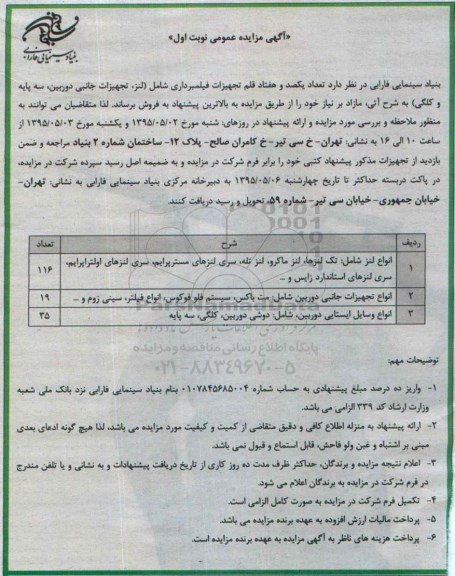 «آگهی مزایده عمومی نوبت اول»
بنیاد سینمایی فارابی
بنیاد سینمایی فارابی در نظر دارد تعداد یکصد و هفتاد قلم تجهیزات فیلمبرداری شامل (لنز، تجهیزات جانبی دوربین، سه پایه
و کلگی) به شرح آتی، مازاد بر نیاز خود را از طریق مزایده به بالاترین پیشنهاد به فروش برساند. لذا متقاضیان می توانند به
منظور ملاحظه و بررسی مورد مزایده و ارائه پیشنهاد در روزهای: شنبه مورخ ۱۳۹۵/۰۵/۰۲ و یکشنبه مورخ ۱۳۹۵/۰۵/۰۳ از
ساعت ۱۰ الی ۱۶ به نشانی: تهران- خ سی تیر- خ کامران صالح- پلاک ۱۲- ساختمان شماره ۲ بنیاد مراجعه و ضمن
بازدید از تجهیزات مذکور پیشنهاد کتبی خود را برابر فرم شرکت در مزایده و به ضمیمه اصل رسید سپرده شرکت در مزایده،
در پاکت دربسته حداکثر تا تاریخ چهارشنبه ۱۳۹۵/۰۵/۰۶ به دبیرخانه مرکزی بنیاد سینمایی فارابی به نشانی: تهران-
خیابان جمهوری- خیابان سی تیر- شماره ۵۹، تحویل و رسید دریافت کنند.
ردیف شرح تعداد
۱ انواع لنز شامل: تک لنزها، لنز ماکرو، لنز تله، سری لنزهای مسترپرایم، سری لنزهای اولتراپرایم،
سری لنزهای استاندارد زایس و .. ۱۱۶
۲ انواع تجهیزات جانبی دوربین شامل: مت باکس، سیستم فلو فوکوس، انواع فیلتر، سینی زوم و .. ۱۹
۳ انواع وسایل ایستایی دوربین، شامل: دوشی دوربین، کلگی، سه پایه ۳۵
پایگاه اطلاع رسانی مناقصه و مزایده
۰۲۱-۸۸۳۴۹۶۷۰-۵
توضیحات مهم:
۱- واریز ده درصد مبلغ پیشنهادی به حساب شماره ۰۱۰۷۸۴۵۶۸۵۰۰۴ بنام بنیاد سینمایی فارابی نزد بانک ملی شعبه
وزارت ارشاد کد ۳۳۹ الزامی می باشد.
۲- ارائه پیشنهاد به منزله اطلاع کافی و دقیق متقاضی از کمیت و کیفیت مورد مزایده می باشد، لذا هیچ گونه ادعای بعدی
مبنی بر اشتباه و غبن ولو فاحش، قابل استماع و قبول نمی باشد.
۳- اعلام نتیجه مزایده و برندگان، حداکثر ظرف مدت ده روز کاری از تاریخ دریافت پیشنهادات و به نشانی و یا تلفن مندرج
در فرم شرکت در مزایده به برندگان اعلام می شود.
۴- تکمیل فرم شرکت در مزایده به صورت کامل الزامی است.
۵- پرداخت مالیات ارزش افزوده به عهده برنده مزایده می باشد.
۶- پرداخت هزینه های ناظر به آگهی مزایده به عهده برنده مزایده است.